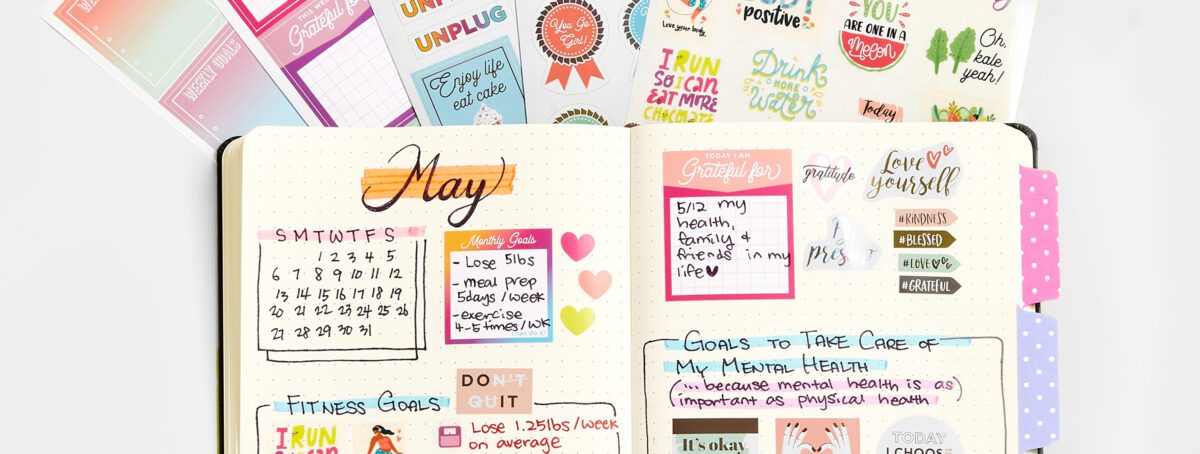 WEEKLY GOALS
THIS WEEK
Grateful for
UNPLUG
UNPLUG
Enjoy life
eat cake
You Go
Girl!
Love your body
positive
I RUN
SO I CAN
EAT MORE
CHOCOLATE
Drink
MORE
Water
YOU
ARE ONE IN A
Melon
Oh,
kale
yeah!
Today
May
S M T W T F S
1 2 3 4 5
6 7 8 9 10 11 12
13 14 15 16 17 18 19
20 21 22 23 24 25 26
27 28 29 30 31
Monthly Goals
- Lose 5lbs
- meal prep
5days/week
- exercise
4-5times/wk
I can do it!
FITNESS GOALS
DON'T
QUIT
I RUN
SO I CAN
Lose 1.25lbs/week
on average
TODAY I AM
Grateful for
5/12 my
health,
family &
friends in my
life
gratitude
Love
yourself
present
#KINDNESS
#BLESSED
#LOVE
#GRATEFUL
GOALS TO TAKE CARE OF
MY MENTAL HEALTH
(...because mental health is as
important as physical health)
It's okay
TODAY
I CHOOSE